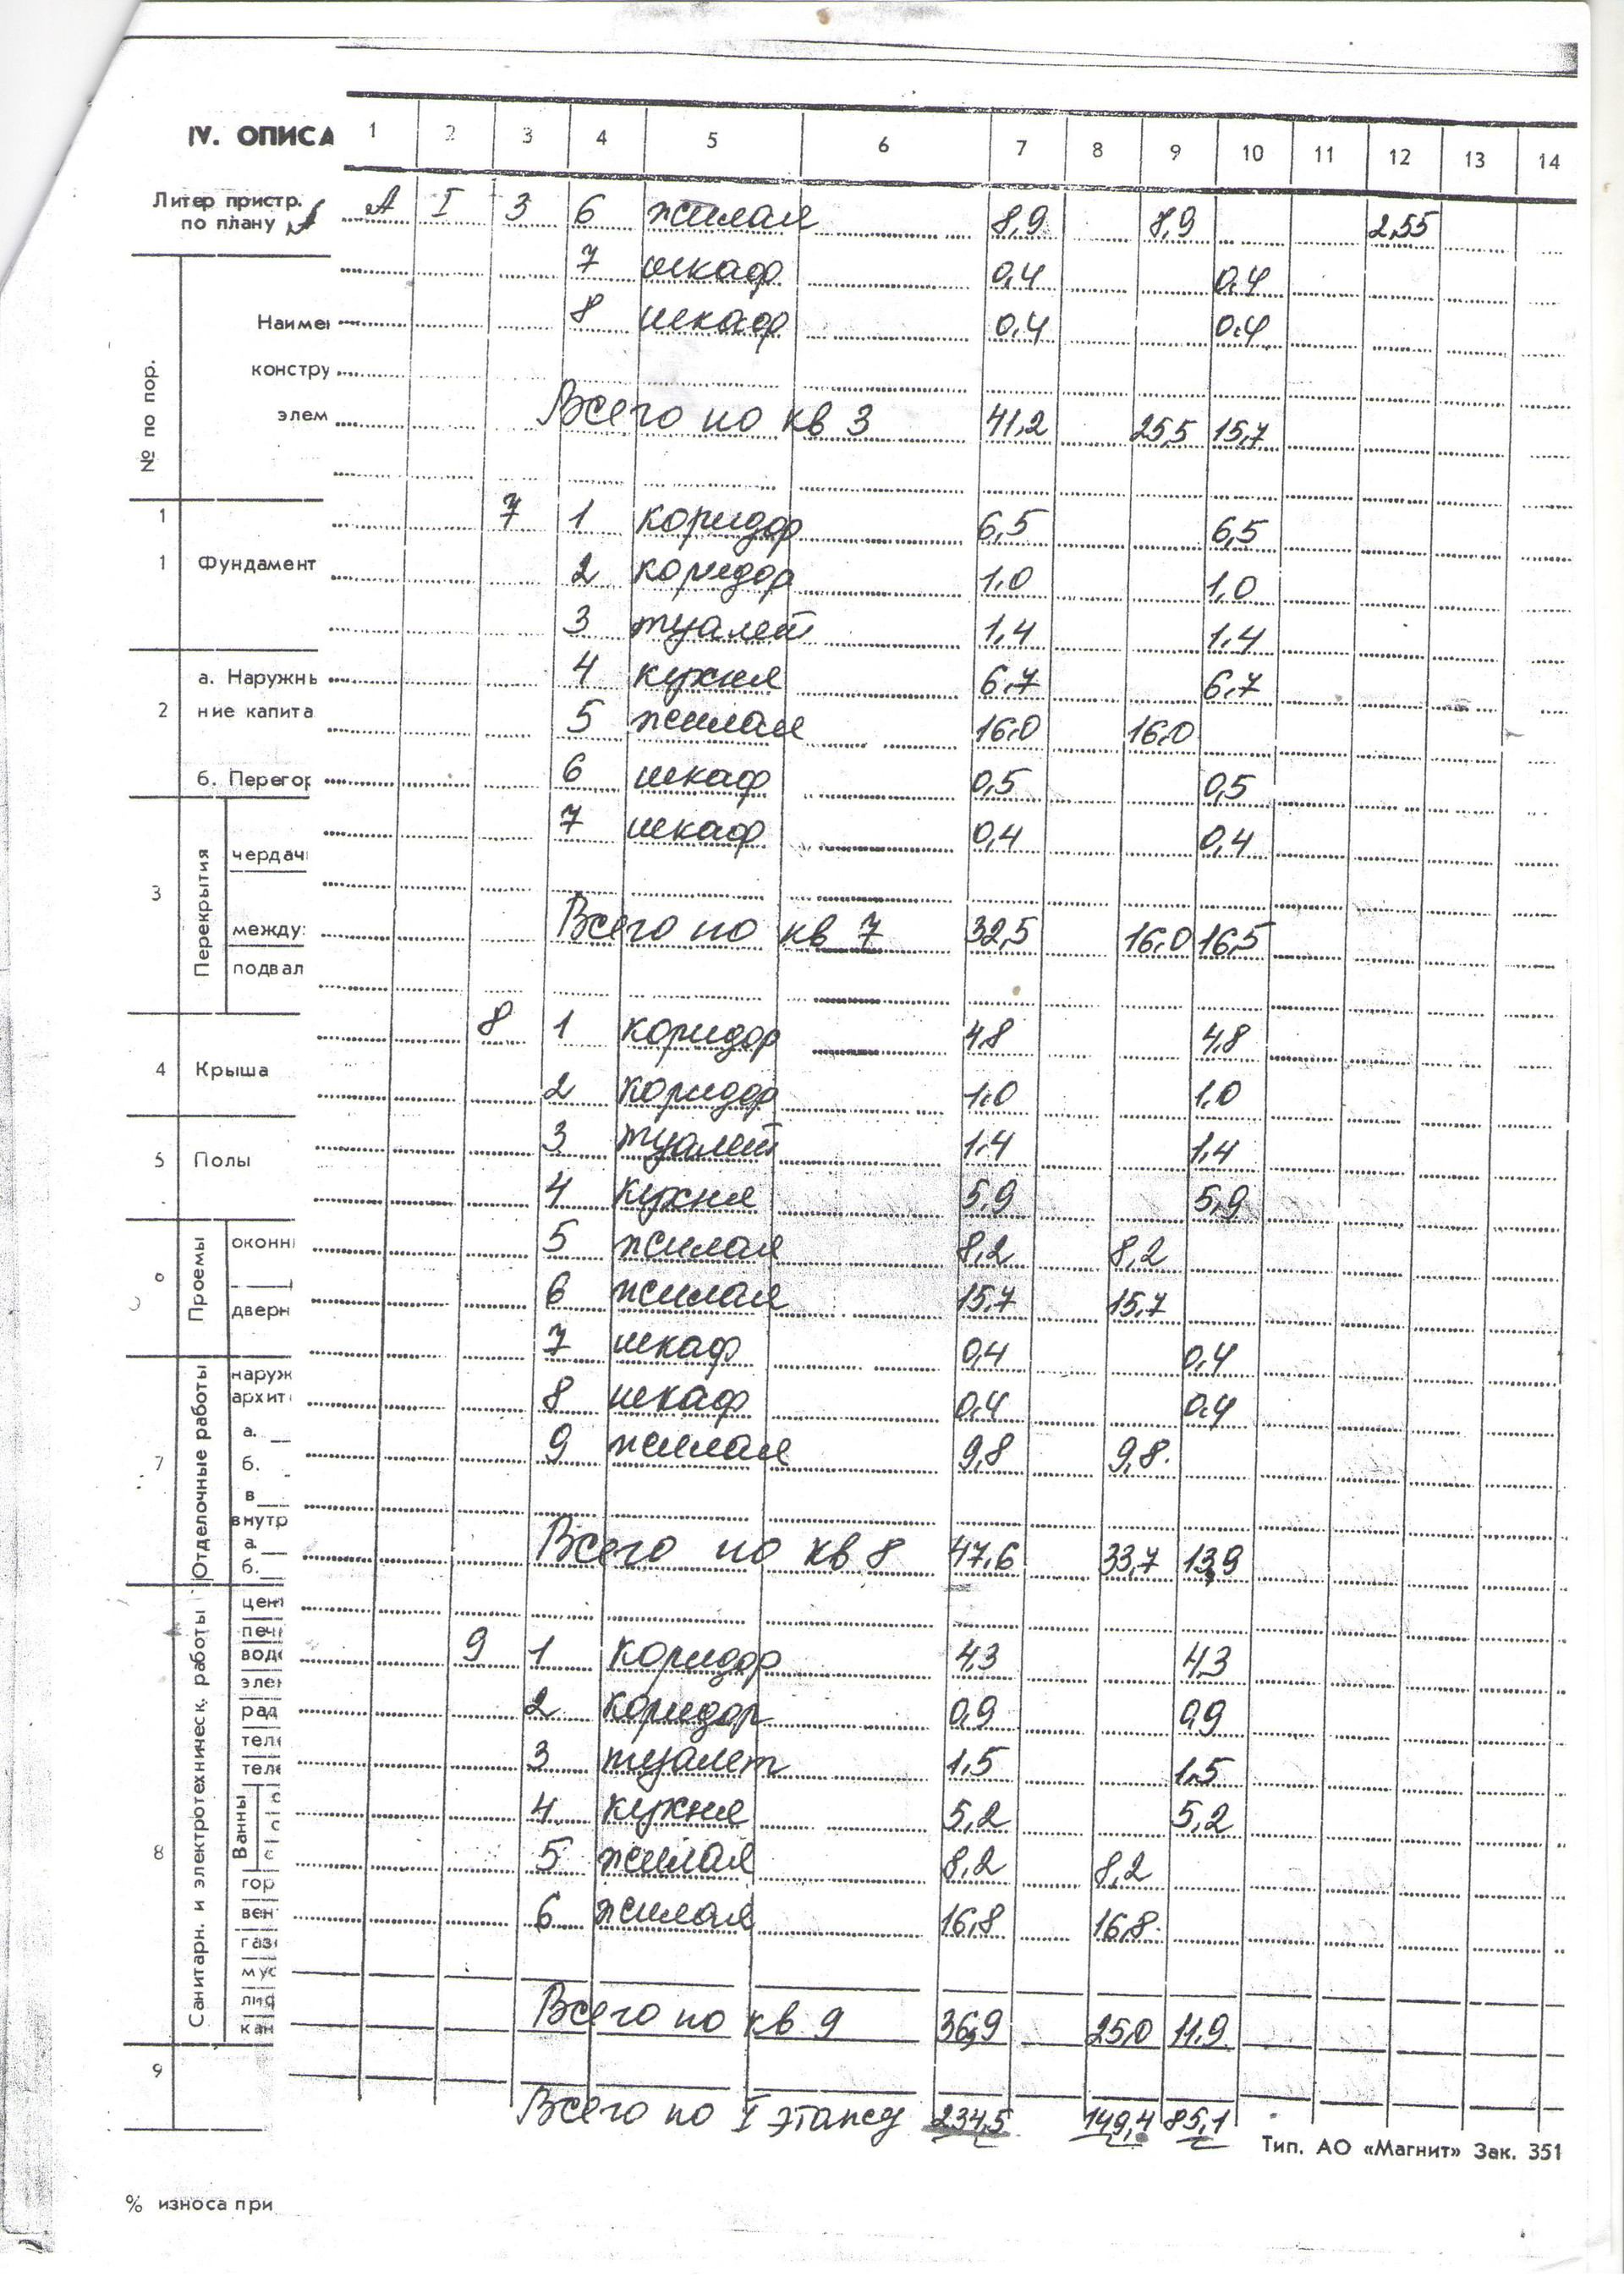 IV. ОПИСА
1 2 3 4 5 6 7 8 9 10 11 12 13 14
Литер пристр.
по плану А
А I 3 6 жилая 8,9 8,9 2,55
7 шкаф 0,4 0,4
Наиме 8 шкаф 0,4 0,4
констру
элем Всего по кв 3 41,2 25,5 15,7
№ по пор.
1 7 1 коридор 6,5 6,5
1 Фундамент 2 коридор 1,0 1,0
3 туалет 1,4 1,4
а. Наружнь 4 кухня 6,7 6,7
2 ние капита 5 жилая 16,0 16,0
б. Перегор 6 шкаф 0,5 0,5
7 шкаф 0,4 0,4
3 Перекрытия чердач
между: Всего по кв 7 32,5 16,0 16,5
подвал
8 1 коридор 4,8 4,8
4 Крыша
2 коридор 1,0 1,0
5 Полы 3 туалет 1,4 1,4
4 кухня 5,9 5,9
6 Проемы оконн 5 жилая 8,2 8,2
дверн 6 жилая 15,7 15,7
7 шкаф 0,4 0,4
наруж
архит 8 шкаф 0,4 0,4
7 Отделочные работы а. 9 жилая 9,8 9,8
б.
в
внутр
а. Всего по кв 8 47,6 33,7 13,9
б.
цен
печ
8 Санитарн. и электротехническ. работы вод 9 1 коридор 4,3 4,3
элек
рад 2 коридор 0,9 0,9
теле
теле 3 туалет 1,5 1,5
Ванны 4 кухня 5,2 5,2
5 жилая 8,2 8,2
гор
вен 6 жилая 16,8 16,8
газ
мус
лиф Всего по кв 9 36,9 25,0 11,9
кан
9
Всего по I этажу 234,5 149,4 85,1
Тип. АО «Магнит» Зак. 351
% износа при